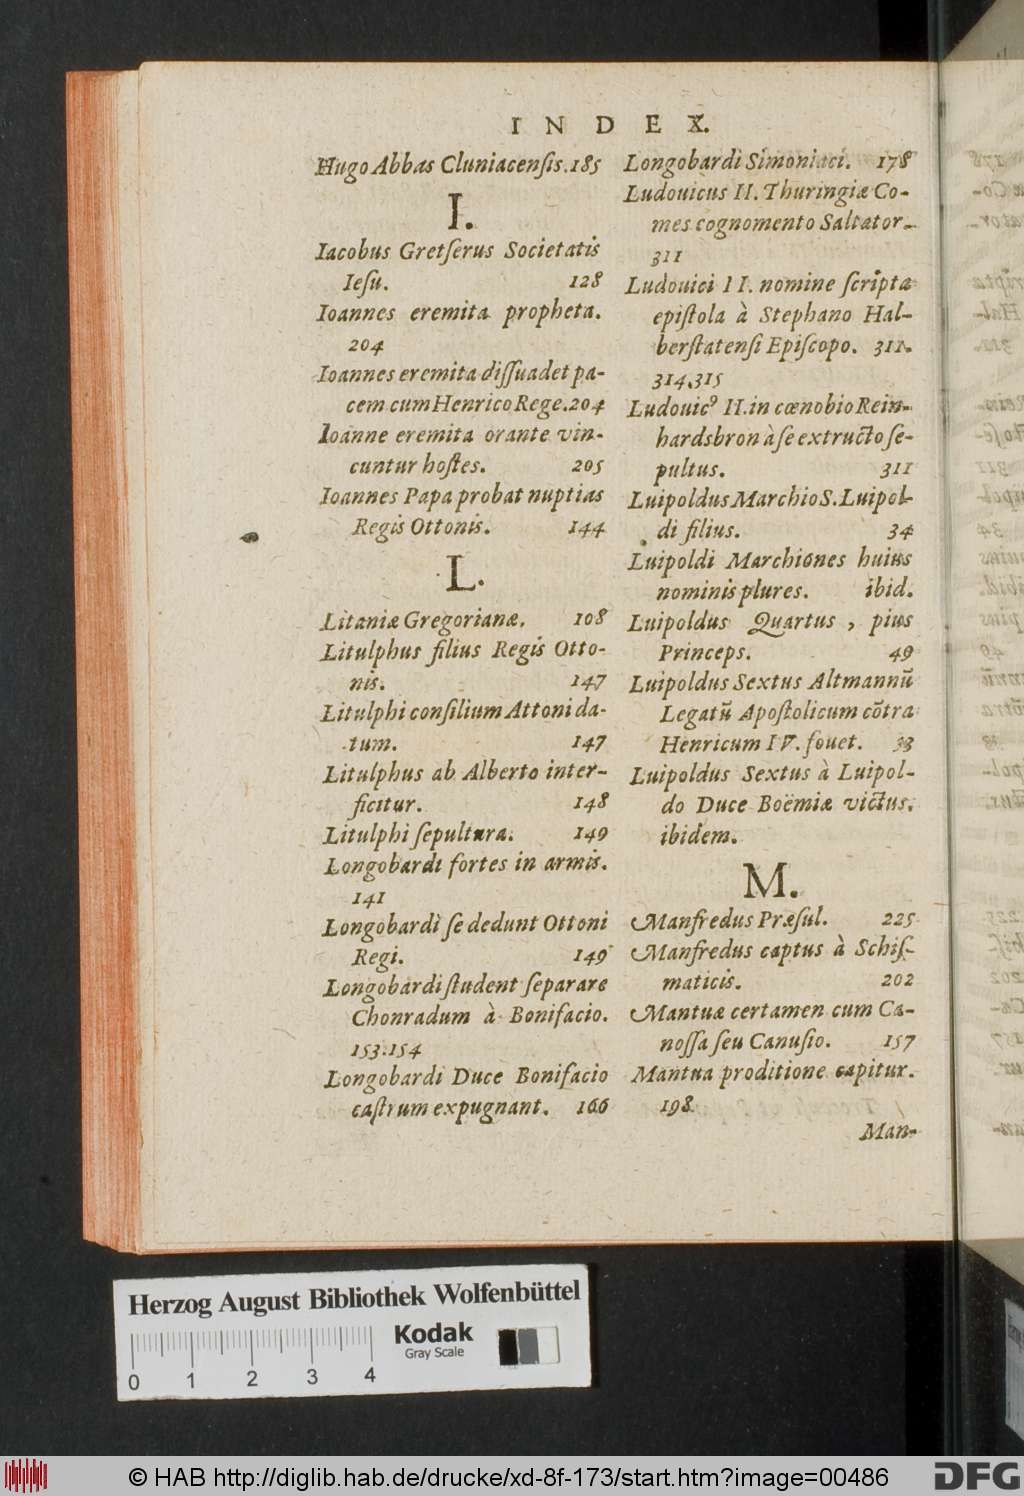 INDEX.
Hugo Abbas Cluniacenſis. 185
I.
Iacobus Gretſerus Societatis
Ieſu. 128
Ioannes eremita propheta.
204
Ioannes eremita diſſuadet pa-
cem cum Henrico Rege. 204
Ioanne eremita orante vin-
cuntur hoſtes. 205
Ioannes Papa probat nuptias
Regis Ottonis. 144
L.
Litaniæ Gregorianæ. 108
Litulphus filius Regis Otto-
nis. 147
Litulphi conſilium Attoni da-
tum. 147
Litulphus ab Alberto inter-
ficitur. 148
Litulphi ſepultura. 149
Longobardi fortes in armis.
141
Longobardi ſe dedunt Ottoni
Regi. 149
Longobardi ſtudent ſeparare
Chonradum à Bonifacio.
153.154
Longobardi Duce Bonifacio
caſtrum expugnant. 166
Longobardi Simoniaci. 178
Ludouicus II. Thuringiæ Co-
mes cognomento Saltator.
311
Ludouici II. nomine ſcripta
epiſtola à Stephano Hal-
berſtatenſi Epiſcopo. 311.
314.315
Ludouicꝰ II. in cœnobio Rein-
hardsbron à ſe extructo ſe-
pultus. 311
Luipoldus Marchio S. Luipol-
di filius. 34
Luipoldi Marchiones huius
nominis plures. ibid.
Luipoldus Quartus, pius
Princeps. 49
Luipoldus Sextus Altmannũ
Legatũ Apoſtolicum cõtra
Henricum IV. fouet. 33
Luipoldus Sextus à Luipol-
do Duce Boëmiæ victus.
ibidem.
M.
Manfredus Præſul. 225
Manfredus captus à Schiſ-
maticis. 202
Mantuæ certamen cum Ca-
noſſa ſeu Canuſio. 157
Mantua proditione capitur.
198
Man-
Herzog August Bibliothek Wolfenbüttel
Kodak
Gray Scale
0 1 2 3 4
© HAB http://diglib.hab.de/drucke/xd-8f-173/start.htm?image=00486
DFG